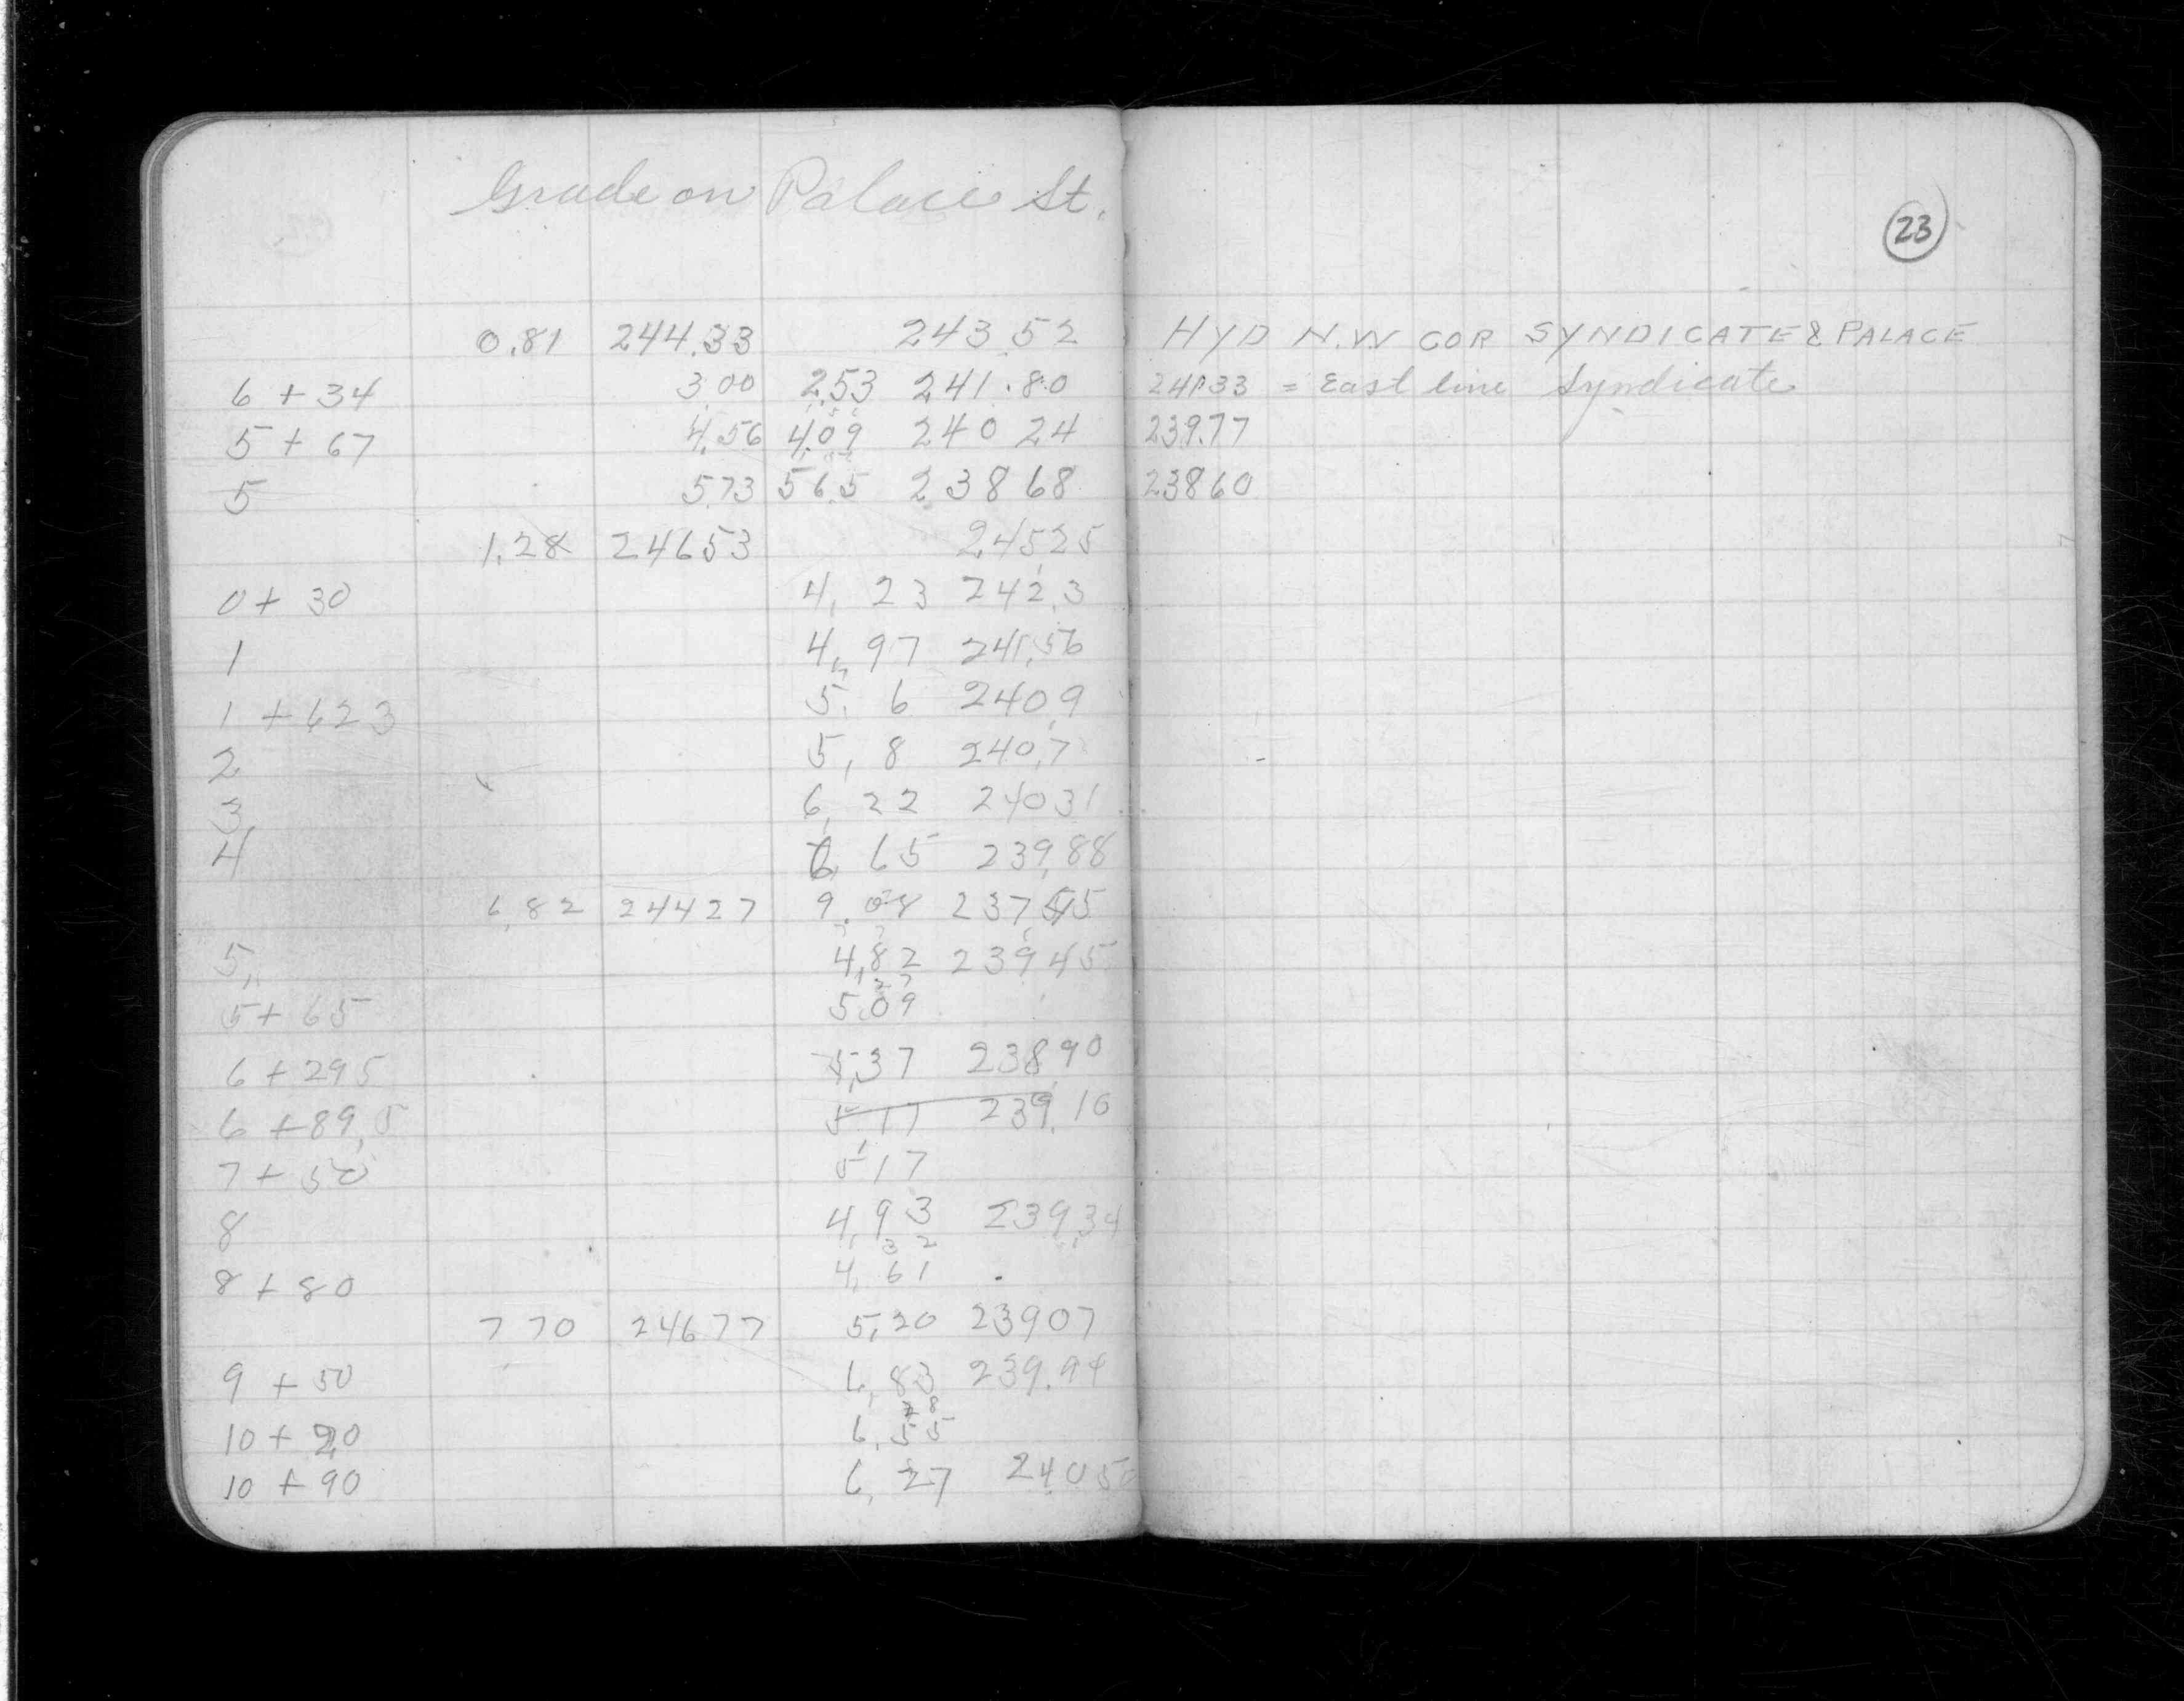 Grade on Palace St.
23
0.81 244.33 243 52 HYD N.W COR SYNDICATE & PALACE
6 + 34 3 00 2.53 241.80 241.33 = East line Syndicate
5 + 67 4.56 4.09 240 24 239.77
5 5 73 5 6.5 238 68 238 60
1.28 246 53 245 25
0 + 30 4. 23 242.3
1 4. 97 241.56
1 + 62 3 5. 6 240 9
2 5, 8 240.7
3 6, 22 240 31
4 6, 65 239.88
6.82 244 27 9.08 237
5 4.82 239 45
2 7
5 + 65 5.09
6 + 29 5 5.37 238 90
6 + 89.5 5 17 239.10
7 + 50 5 17
8 4.93 239.34
3 2
8 + 80 4. 61
7 70 246 77 5.20 239 07
9 + 50 6, 83 239.94
8
10 + 20 6. 55
10 + 90 6, 27 240 5